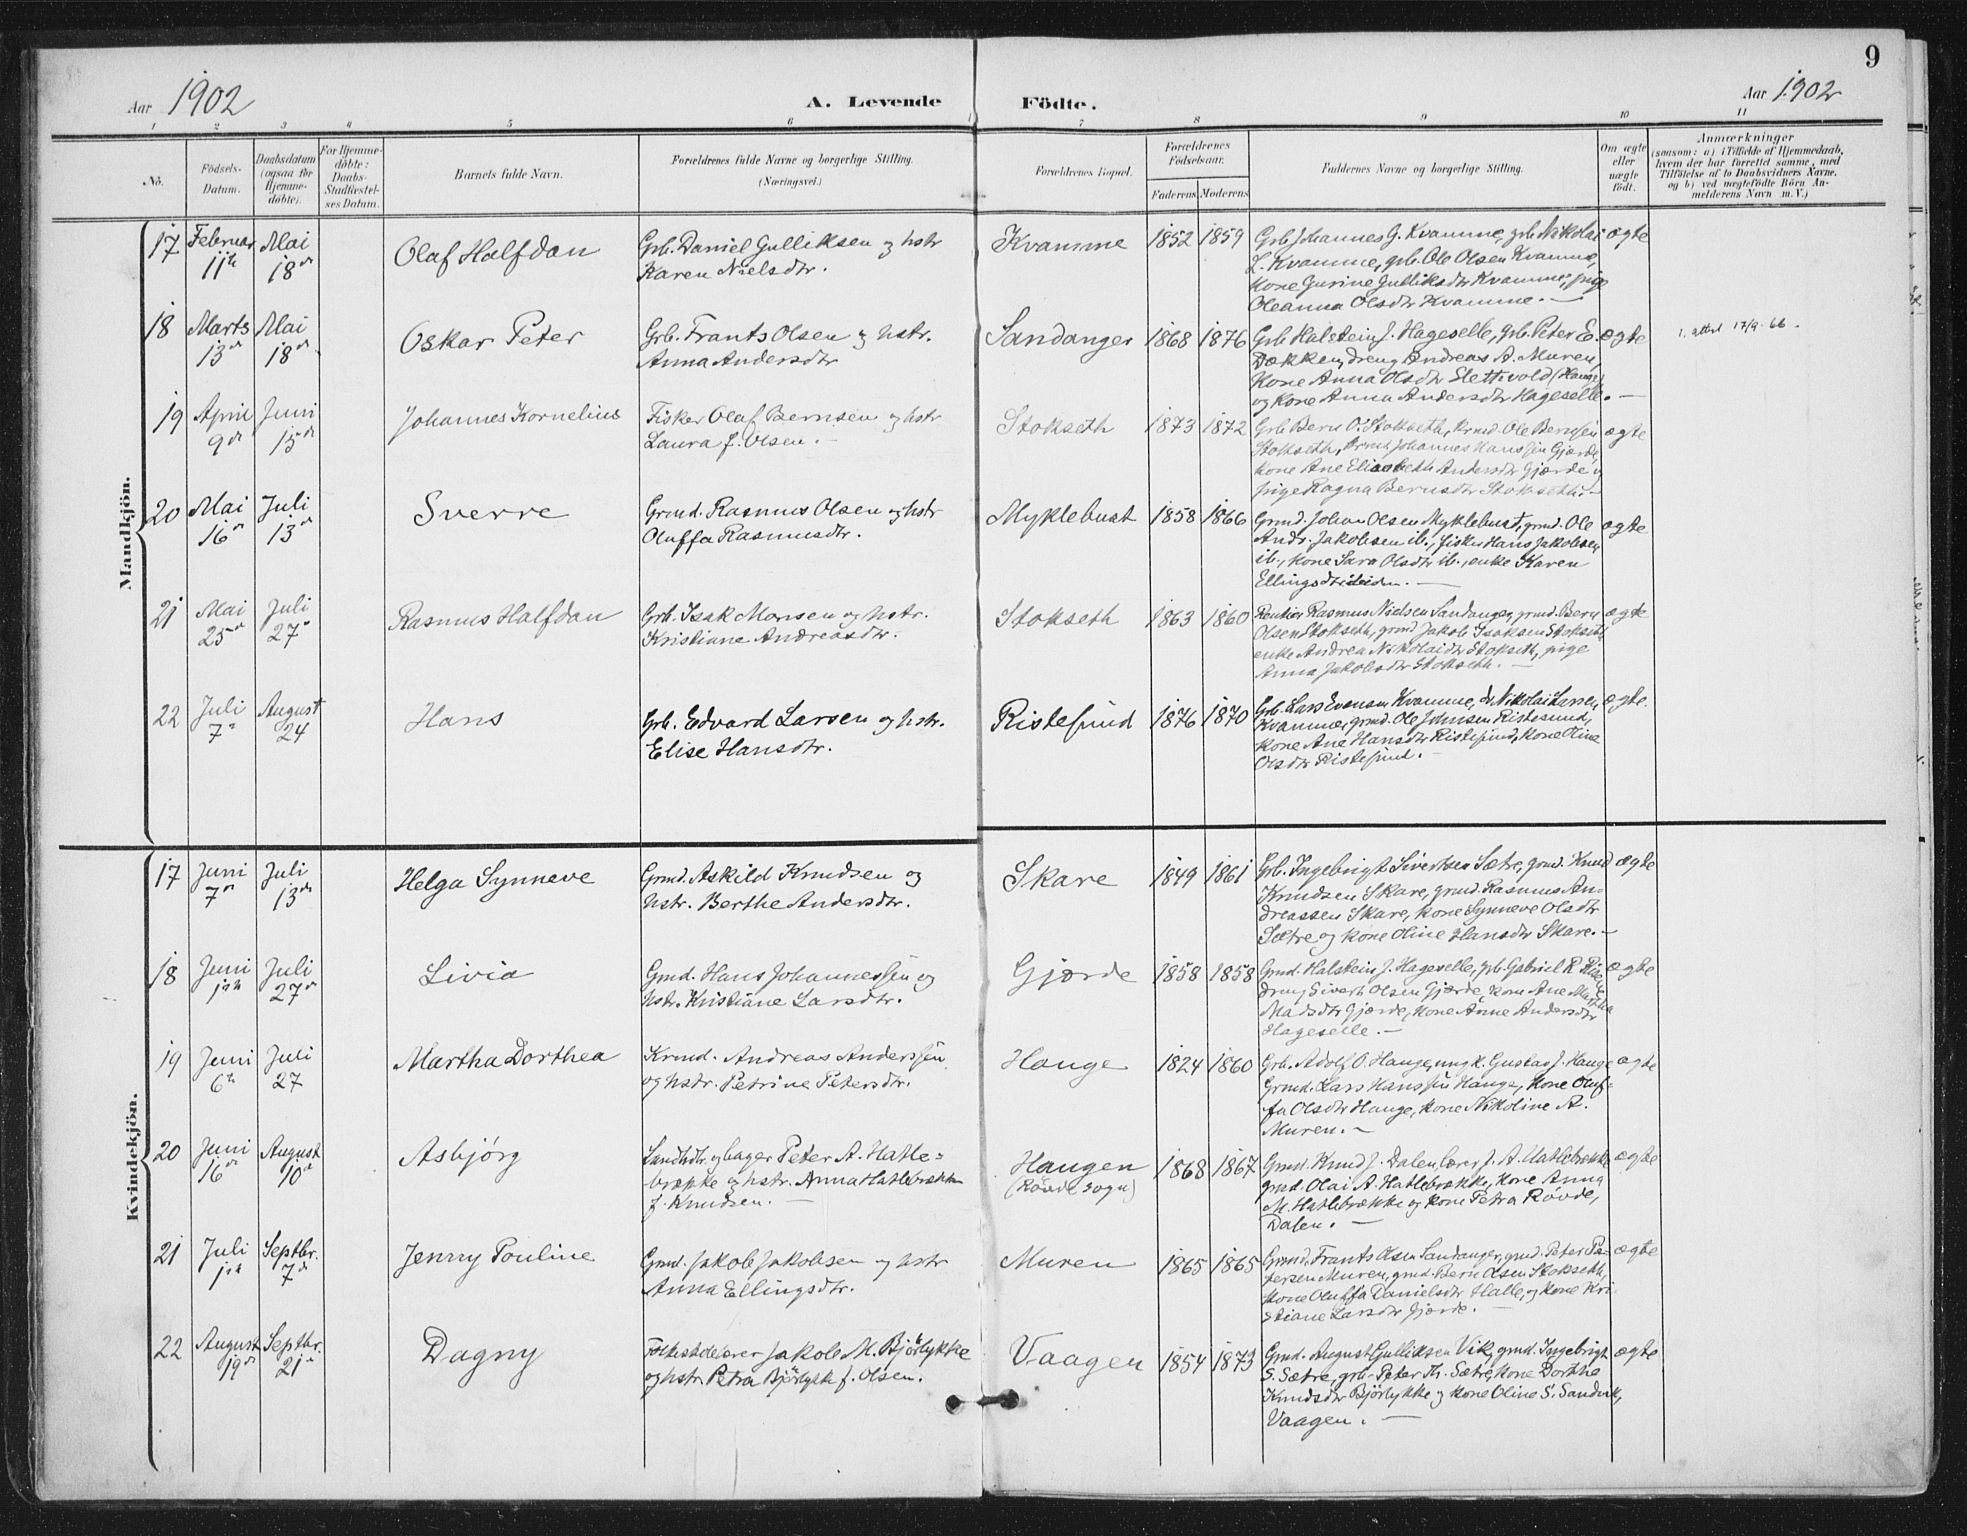 9
Aar 1902
A. Levende
Födte.
Aar 1902
1 2 3 4 5 6 7 8 9 10 11
No.
Födsels-
Datum.
Daabsdatum
(ogsaa for
Hjemme-
døbte).
For Hjemme-
døbte:
Daabs-
Stadfæstel-
ses Datum.
Barnets fulde Navn.
Forældrenes fulde Navne og borgerlige Stilling.
(Næringsvei.)
Forældrenes Bopæl.
Forældrenes
Födselsaar.
Faderens Moderens
Faddernes Navne og borgerlige Stilling.
Om ægte
eller
uægte
født.
Anmærkninger
(saasom: a) i Tilfælde af Hjemmedaab,
hvem der har forrettet samme, med
Tilföielse af to Daabsvidners Navne.
og b) ved uægtefödte Börn An-
melderens Navn m. V.)
Mandkjön.
17 Februar 11th Mai 18de
Olaf Halfdan
Grb. Daniel Gulliksen og hstr
Karen Nielsdtr.
Kvamme 1852 1859
Grb. Johannes G. Kvamme, grb. Nikolai
L. Kvamme, grb. Ole Olsen Kvamme,
kone Gurine Gulliksdtr Kvamme, pige
Oleanna Olsdtr Kvamme. —
ægte
18 Marts 13de Mai 18de
Oskar Peter
Grb. Frants Olsen og hstr.
Anna Andersdtr
Sandanger 1868 1876
Grb. Halstein J. Hageselle, grb. Peter E.
Dækken, dreng Andreas A. Muren,
kone Anna Olsdtr Slettevold (Hauge)
og kone Anna Andersdtr Hageselle. —
ægte
1. attest 17/9-66.
19 April 9de Juni 15de
Johannes Kornelius
Fisker Olaf Bernsen og hstr
Laura f. Olsen. —
Stokseth 1873 1872
Grb. Bern O. Stokseth, krmd. Ole Bernsen
Stokseth, Johannes Hanssen Gjærde,
kone Ane Elisabeth Andersdtr Gjærde og
pige Ragna Bernsdtr Stokseth. —
ægte
20 Mai 16de Juli 13de
Sverre
Grmd. Rasmus Olsen og hstr
Oluffa Rasmusdtr.
Myklebust 1858 1866
Grmd. Johan Olsen Myklebust, grmd. Ole
Andr. Jakobsen ib., fisker Hans Jakobsen
ib., kone Sara Olsdtr ib., enke Karen
Ellingsdtr ibidem. —
ægte
21 Mai 25de Juli 27de
Rasmus Halfdan
Grb. Isak Monsen og hstr.
Kristiane Andreasdtr.
Stokseth 1863 1860
Rentier Rasmus Nielsen Sandanger, grmd. Bern
Olsen Stokseth, grmd Jakob Isaksen Stokseth,
enke Andrea Nikolaidtr Stokseth, pige
Anna Jakobsdtr Stokseth. —
ægte
22 Juli 7de August 24
Hans
Grb. Edvard Larsen og hstr.
Elise Hansdtr.
Ristesund 1876 1870
Grb. Lars Evensen Kvamme, dr. Nikolai Larsen
Kvamme, grmd. Ole Johnsen Ristesund,
kone Ane Hansdtr Ristesund, kone Oline
Olsdtr Ristesund. —
ægte
Kvindekjön.
17 Juni 7de Juli 13de
Helga Synneve
Grmd. Askild Knudsen og
hstr. Berthe Andersdtr.
Skare 1849 1861
Grb. Ingebrigt Sivertsen Sætre, grmd. Knud
Knudsen Skare, grmd. Rasmus An-
dreassen Skare, kone Synneve Olsdtr
Sætre og kone Oline Hansdtr Skare. —
ægte
18 Juni 1ste Juli 27de
Livia
Grmd. Hans Johannessen og
hstr. Kristiane Larsdtr.
Gjærde 1858 1858
Grmd. Halstein J. Hageselle, grb. Gabriel R. Rise
dreng Sivert Olsen Gjærde, kone Ane Martha
Madsdtr Gjærde, kone Anne Andersdtr
Hageselle. —
ægte
19 Juni 6th Juli 27
Martha Dorthea
Krmd. Andreas Anderssen
og hstr. Petrine Petersdtr.
Hauge 1824 1860
Grb. Adolf O. Hauge, ungk. Gustav J. Hauge
Grmd. Lars Hanssen Hauge, kone Oluf-
fa Olsdtr Hauge, kone Nikoline A.
Muren. —
ægte
20 Juni 16de August 10de
Asbjørg
Landhdlr. og bager Peter A. Hatle-
brække og hstr. Anna Hatlebrække
f. Knudsen. —
Haugen
(Røvde sogn)
1868 1867
Grmd. Knud J. Dalen, lærer J. A. Hatlebrække
grmd. Olai A. Hatlebrække, kone Anna
M. Hatlebrække og kone Petra Røvde,
Dalen. —
ægte
21 Juli 1ste Septbr. 7de
Jenny Pouline
Grmd. Jakob Jakobsen og hstr
Anna Ellingsdtr.
Muren 1865 1865
Grmd. Frants Olsen Sandanger, grmd. Peter Pe-
tersen Muren, grmd. Bern Olsen Stokseth,
kone Oluffa Danielsdtr Halle, og kone Kri-
stiane Larsdtr Gjærde. —
ægte
22 August 19de Septbr. 21de
Dagny
Jakob M. Bjørlykke
og hstr. Petra Bjørlykke f. Olsen.
Vaagen 1854 1873
Grmd. August Gulliksen Vik, grmd. Ingebrigt
S. Sætre, grb. Peter Th. Sætre, kone Dorthe
Knudsdtr Bjørlykke og kone Oline S. Sandvik,
Vaagen. —
ægte